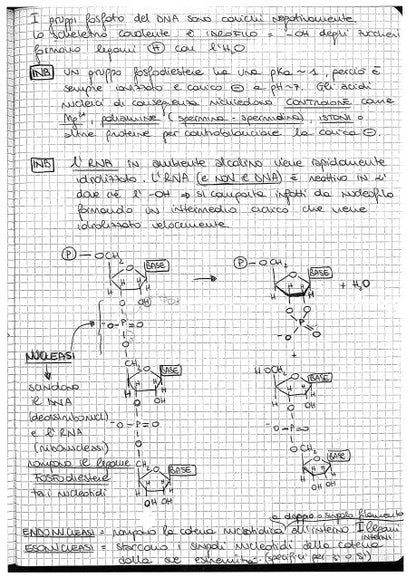 I gruppi fosfato del DNA sono carichi negativamente
lo scheletro covalente è IDROFILO = -OH degli zuccheri
formano legami H con l'H2O
NB UN gruppo fosfodiestere ha una pKa ~ 1, perciò è
sempre ionizzato e carico ⊖ a pH ~ 7. Gli acidi
nucleici di conseguenza richiedono CONTROIONE come
Mg2+, poliammine (spermina - spermidina), ISTONI o
altre proteine per controbilanciare la carica ⊖.
NB L'RNA IN ambiente alcalino viene rapidamente
idrolizzato. L'RNA (e NON il DNA) è reattivo in 2'
dove c'è l'-OH ⇒ si comporta infatti da nucleofilo
formando un intermedio ciclico che viene
idrolizzato velocemente
P - O CH2
BASE
OH
-O-P=O
CH2
BASE
OH
-O-P=O
CH2
BASE
OH OH
P - O CH2
BASE
+ H2O
P
O
+
HOCH2
BASE
OH
-O-P=O
OCH2
BASE
OH OH
NUCLEASI
scindono
il DNA
(deossiribonucl)
e l'RNA
(ribonucleasi)
rompono il legame
FOSFODIESTERE
tra i nucleotidi
a doppio o singolo filamento
ENDONUCLEASI = rompono la catena nucleotidica all'interno I legami
interni
ESONUCLEASI = staccano i singoli nucleotidi della catena
dalla sue estremità (specifici per 3' o 5')